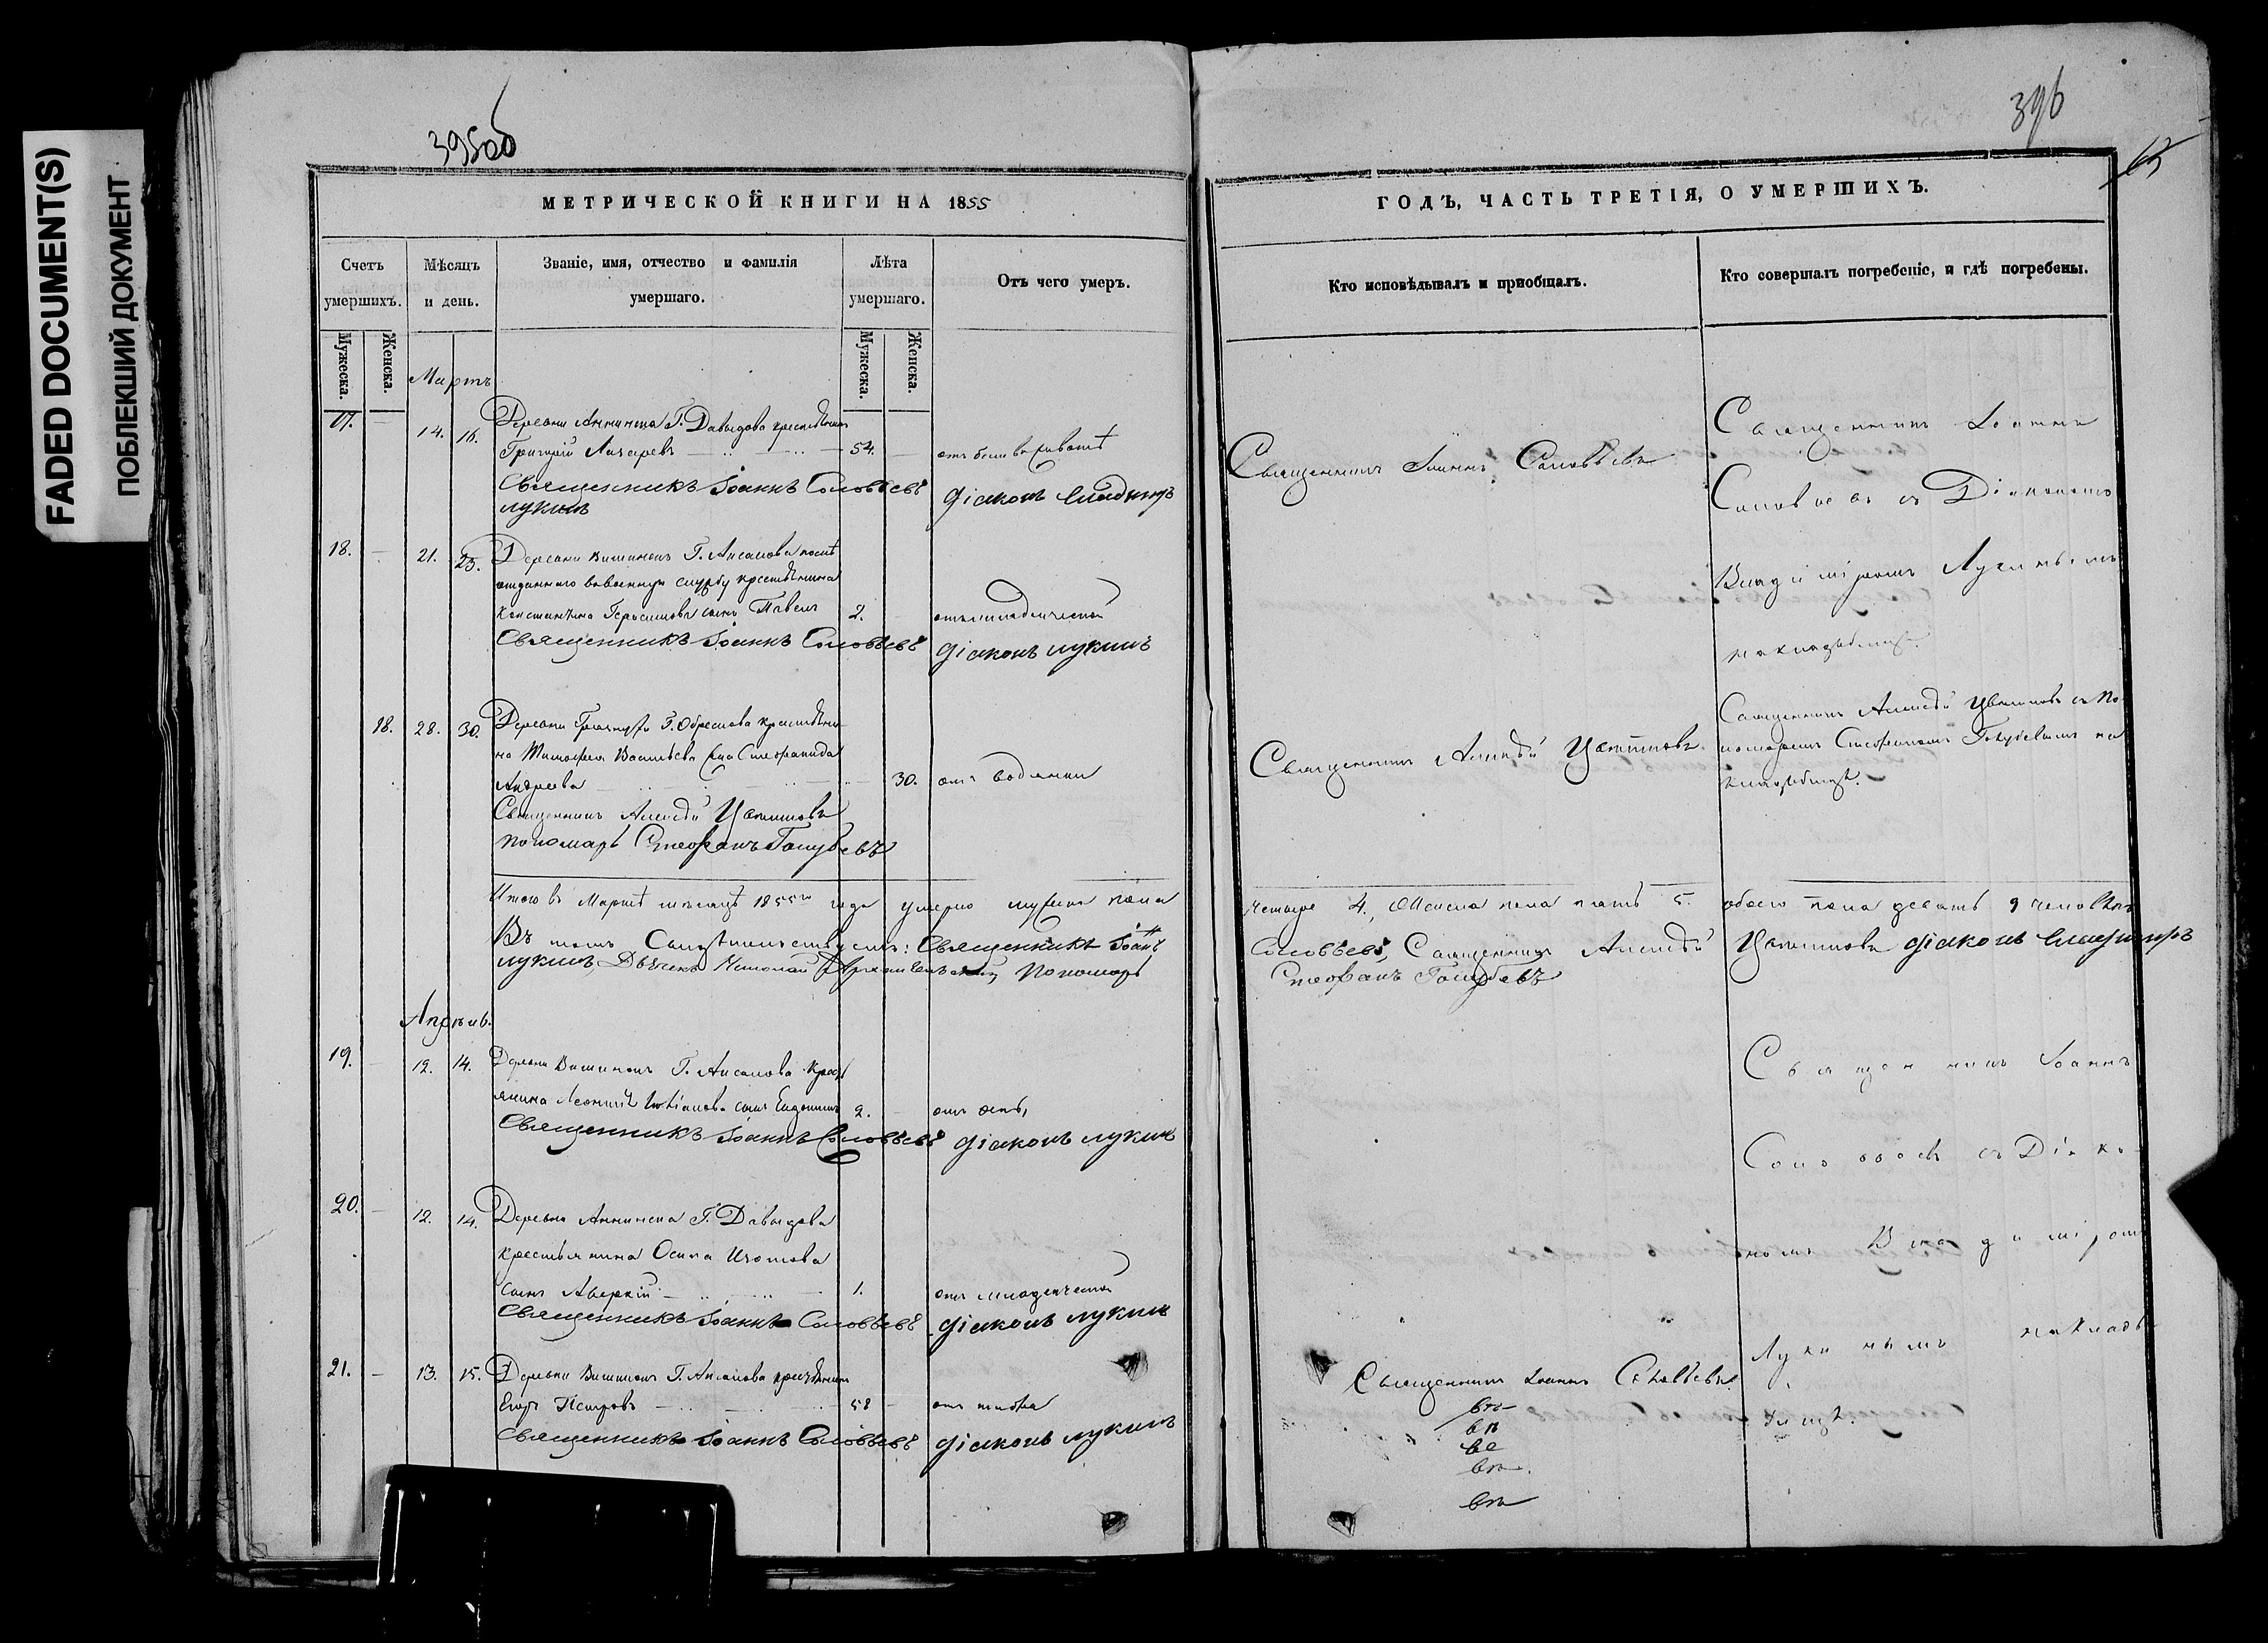 FADED DOCUMENT(S)
ПОБЛЕКШИЙ ДОКУМЕНТ
395об
396
МЕТРИЧЕСКОЙ КНИГИ НА 1855
ГОДЪ, ЧАСТЬ ТРЕТІЯ, О УМЕРШИХЪ.
Счетъ умершихъ.
Мѣсяцъ и день.
Званіе, имя, отчество и фамилія умершаго.
Лѣта умершаго.
Отъ чего умеръ.
Кто исповѣдывалъ и приобщалъ.
Кто совершалъ погребеніе, и гдѣ погребены.
Мужеска.
Женска.
Мужеска.
Женска.
Мартъ
17. — 14. 16. Деревни Аннинска Г. Давыдова крестьянинъ
Григорій Лазаревъ 54.
Священникъ Іоаннъ Соловьевъ Діаконъ Владимръ
Лукинъ
Священникъ Іоаннъ Соловьевъ
Священникъ Іоаннъ
Соловьевъ съ Діакономъ
Владиміромъ Лукинымъ
на кладбищѣ.
18. — 21. 23. Деревни Г. Аксакова послѣ
отданнаго въ военную службу крестьянина
Константина Герасимова сынъ Павелъ 2. отъ младенческой
Священникъ Іоаннъ Соловьевъ Діаконъ Лукинъ
18. 28. 30. Деревни Г. Обрескова крестьяни-
на Тимофея Васильева жена Стефанида
Андреева 30. отъ водянки
Священникъ Алексѣй Цвѣтковъ
Пономарь Стефанъ Голубевъ
Священникъ Алексѣй Цвѣтковъ
Священникъ Алексѣй Цвѣтковъ съ По-
номаремъ Стефаномъ Голубевымъ на
кладбищѣ.
Итого въ Мартѣ мѣсяцѣ 1855го года умерло мужска пола четыре 4., Женска пола пять 5. обоего пола девять 9 человѣкъ
Въ томъ Свидѣтельствуемъ: Священникъ Іоаннъ Соловьевъ, Священникъ Алексѣй Цвѣтковъ Діаконъ Владимиръ
Лукинъ, Дьячекъ Николай Архангельскій, Пономарь Стефанъ Голубевъ
Апрѣль.
19. — 12. 14. Деревни Г. Аксакова крест
янина Леонтія сынъ Евдокимъ 2. отъ оспы,
Священникъ Іоаннъ Соловьевъ Діаконъ Лукинъ
20. — 12. 14. Деревни Аннинска Г. Давыдова
крестьянина Осипа Изотова
сынъ Аверкій 1. отъ младенческой
Священникъ Іоаннъ Соловьевъ Діаконъ Лукинъ
21. — 13. 15. Деревни Г. Аксакова крестьянинъ
Егоръ Петровъ 58
Священникъ Іоаннъ Соловьевъ Діаконъ Лукинъ
Священникъ Іоаннъ Соловьевъ.
Священникъ Іоаннъ
Соловьевъ съ Діако-
номъ Владиміромъ
Лукинымъ на клад-
бищѣ.